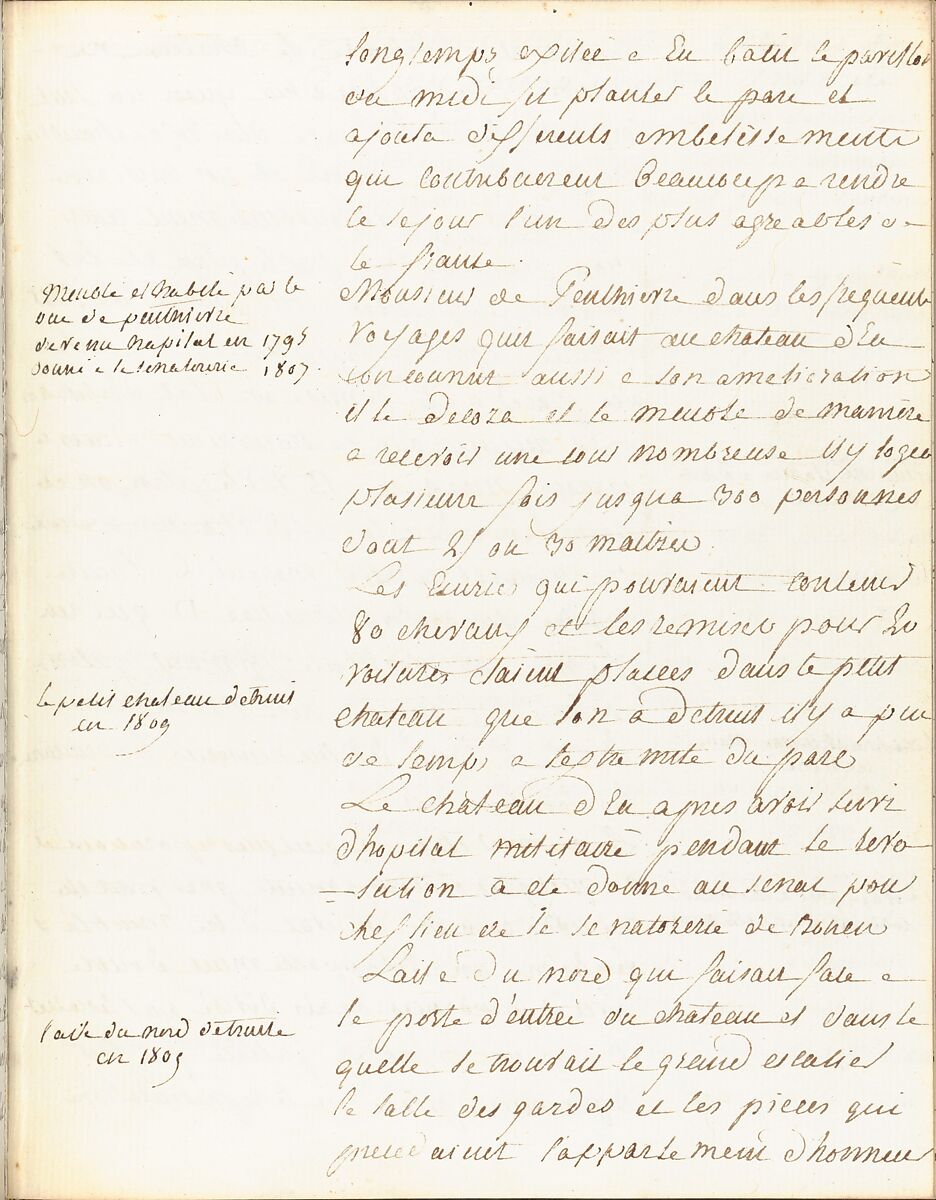 longtemps exilée a Eu batit le pavillon
du midi fit planter le parc et
ajouta differents embelissements
qui contribuerent beaucoup a rendre
le sejour l'un des plus agreables de
la france.
Meublé et habité par le
duc de penthievre
devenu hapital en 1795
donné a la senatorerie 1807.
Monsieur de Penthievre dans les frequents
voyages quil faisait au chateau d'Eu
concourut aussi a son amelioration
il le decora et le meubla de manière
a recevoir une cour nombreuse il y logea
plusieurs fois jusqua 300 personnes
dont 25 ou 30 maitres
Les Ecuries qui pouvaient contenir
80 chevaux et les remises pour 20
voitures etaient placees dans le petit
chateau que lon a detruit il y a peu
de temps a lextremité du parc
le petit chateau detruit
en 1809
Le chateau d'Eu apres avoir servi
d'hopital militaire pendant la revo
-lution a été donné au senat pour
chef lieu de la senatorerie de Rouen
Laile du nord qui faisait face a
la porte d'entrée du chateau et dans la
quelle se trouvait le grand escalier
la salle des gardes et les pieces qui
precedaient l'appartement d'honneur
l'aile du nord detruite
en 1809